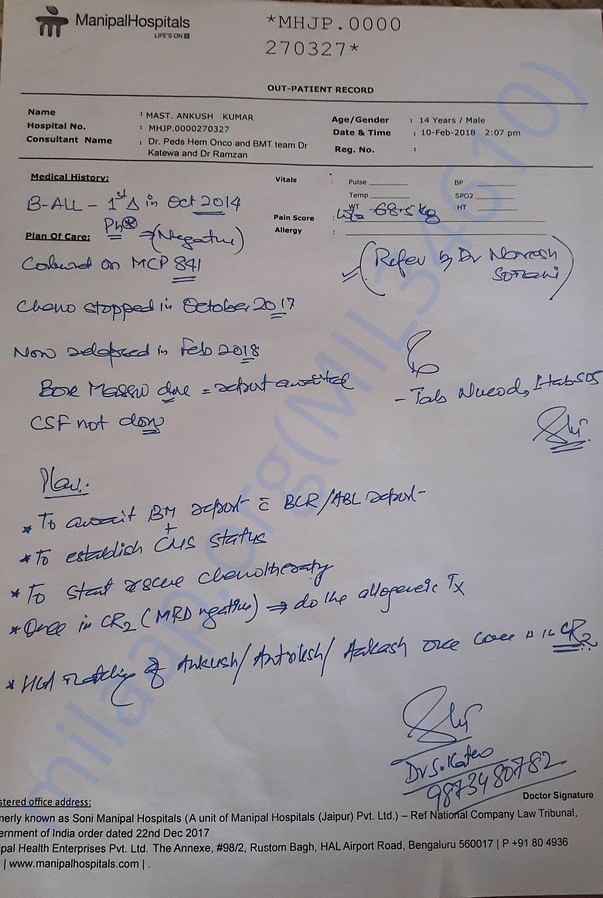 ManipalHospitals
LIFE'S ON
*MHJP.0000
270327*
OUT-PATIENT RECORD
Name : MAST. ANKUSH KUMAR
Hospital No. : MHJP.0000270327
Consultant Name : Dr. Peds Hem Onco and BMT team Dr
Katewa and Dr Ramzan
Age/Gender : 14 Years / Male
Date & Time : 10-Feb-2018 2:07 pm
Reg. No. :
Medical History:
Vitals : Pulse BP
Temp SPO2
WT 68.5 kg HT
Pain Score :
Allergy :
B-ALL - 1st Δ in Oct 2014
Ph ⇒ (Negative)
Plan Of Care:
on MCP 841
(Refer by Dr Naresh
Somani)
Chemo stopped in October 2017
Now relapsed in Feb 2018
Bone Marrow done = report awaited
CSF not done
- Tab 1 tab SOS
Plan:
* To await BM report c̄ BCR/ABL report
* To establish CNS status
* To start rescue chemotherapy
* Once in CR2 (MRD negative) ⇒ do the allogeneic Tx
* HLA matching of Ankush/Antriksh/Aakash once in CR2
Dr S. Katewa
9873480782
Doctor Signature
stered office address:
merly known as Soni Manipal Hospitals (A unit of Manipal Hospitals (Jaipur) Pvt. Ltd.) – Ref National Company Law Tribunal,
ernment of India order dated 22nd Dec 2017
pal Health Enterprises Pvt. Ltd. The Annexe, #98/2, Rustom Bagh, HAL Airport Road, Bengaluru 560017 | P +91 80 4936
| www.manipalhospitals.com | .
milaap.org(MIL34610)